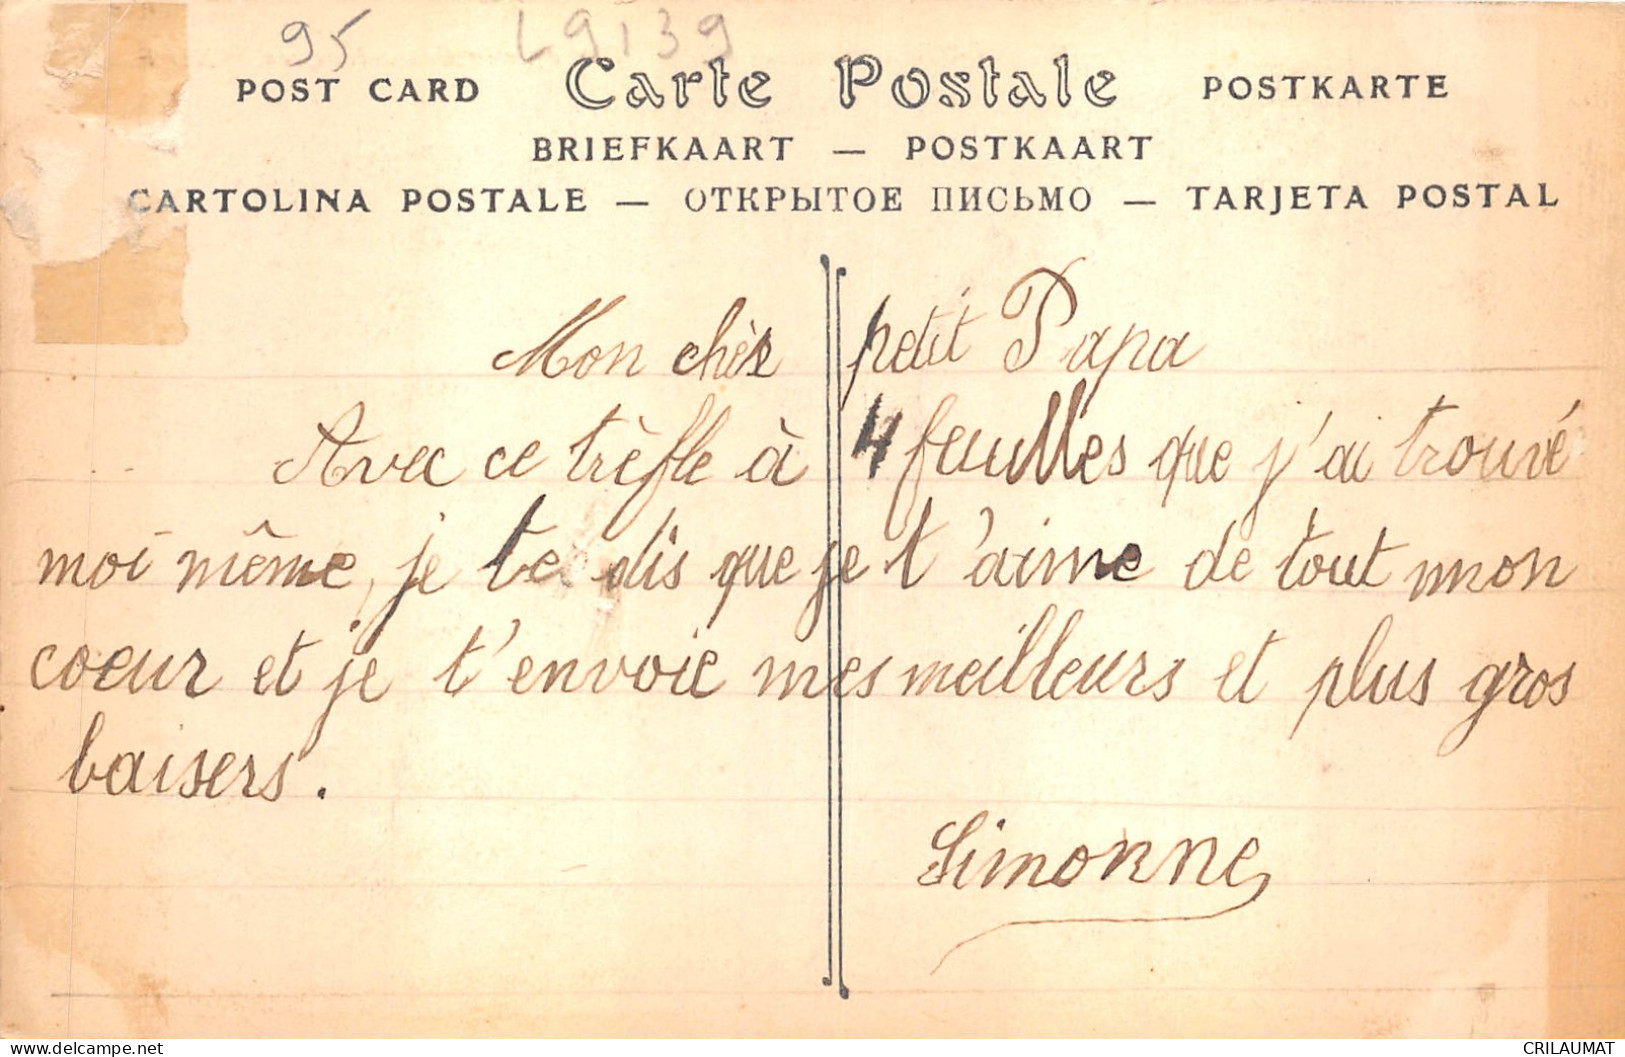 95 L9139
POST CARD Carte Postale POSTKARTE
BRIEFKAART — POSTKAART
CARTOLINA POSTALE — ОТКРЫТОЕ ПИСЬМО — TARJETA POSTAL
Mon cher petit Papa
Avec ce trèfle à 4 feuilles que j'ai trouvé
moi même, je te dis que je t'aime de tout mon
coeur et je t'envoie mes meilleurs et plus gros
baisers.
Simonne
CRILAUMAT